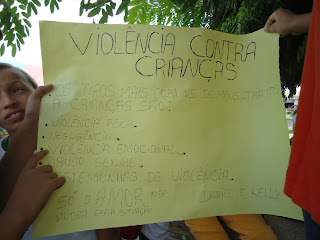 VIOLÊNCIA CONTRA
CRIANÇAS
OS TIPOS MAIS COMUNS DE MAUS TRATOS
A CRIANÇAS SÃO:
VIOLÊNCIA FÍSICA.
NEGLIGÊNCIA.
VIOLÊNCIA EMOCIONAL.
ABUSO SEXUAL.
DE VIOLÊNCIA.
SÓ O AMOR PODE
MUDAR ESSA SITUAÇÃO
E KELLY